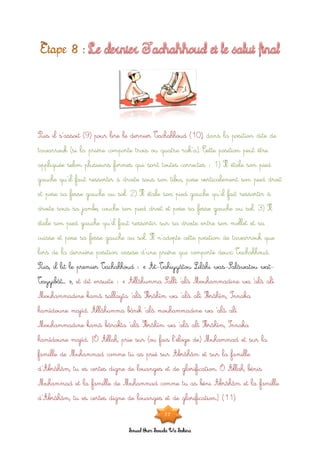 Etape 8 : Le dernier Tachahhoud et le salut final
Puis il s'assoit (9) pour lire le dernier Tachahhoud (10), dans la position dite de
tawarrouk (si la prière comporte trois ou quatre rak'a). Cette position peut être
appliquée selon plusieurs formes qui sont toutes correctes : 1) Il étale son pied
gauche qu'il fait ressortir à droite sous son tibia, pose verticalement son pied droit
et pose sa fesse gauche au sol. 2) Il étale son pied gauche qu'il fait ressortir à
droite sous sa jambe, couche son pied droit et pose sa fesse gauche au sol. 3) Il
étale son pied gauche qu'il fait ressortir sur sa droite entre son mollet et sa
cuisse et pose sa fesse gauche au sol. Il n'adopte cette position de tawarrouk que
lors de la dernière position assise d'une prière que comporte deux Tachahhoud.
Puis, il lit le premier Tachahhoud : « At-Tahiyyâtou Lillâhi was-Salawâtou wat-
Tayyibât... », et dit ensuite : « Allâhumma Salli 'alâ Mouhammadine wa 'alâ âli
Mouhammadine kamâ sallayta 'alâ Ibrâhîm wa 'alâ âli Ibrâhîm, Innaka
hamîdoune majîd. Allâhumma bârik 'alâ mouhammadine wa 'alâ âli
Mouhammadine kamâ bârakta 'alâ Ibrâhîm wa 'alâ âli Ibrâhîm, Innaka
hamîdoune majîd. (Ô Allah, prie sur (ou fais l'éloge de) Muhammad et sur la
famille de Muhammad comme tu as prié sur Abrâhâm et sur la famille
d'Abrâhâm, tu es certes digne de louanges et de glorification. Ô Allah, bénis
Muhammad et la famille de Muhammad comme tu as béni Abrâhâm et la famille
d'Abrâhâm, tu es certes digne de louanges et de glorification). (11)